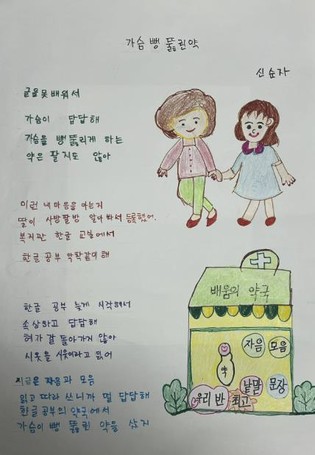 가슴 뻥 뚫린약
신순자
글을 못 배워서
가슴이 답답해
가슴을 뻥 뚫리게 하는
약은 팔지도 않아
이런 내 마음을 아는지
딸이 사방팔방 알아봐서 등록했어.
복지관 한글 교실에서
한글 공부 시작하게 해
한글 공부 늦게 시작해서
속상하고 답답해
혀가 잘 돌아가지 않아
시옷을 사옷이라고 했어
지금은 자음과 모음
읽고 따라 쓰니까 덜 답답해
한글공부의 약국에서
가슴이 뻥 뚫린 약을 샀지
배움의 약국
자음 모음
낱말 문장
우리 반 최고